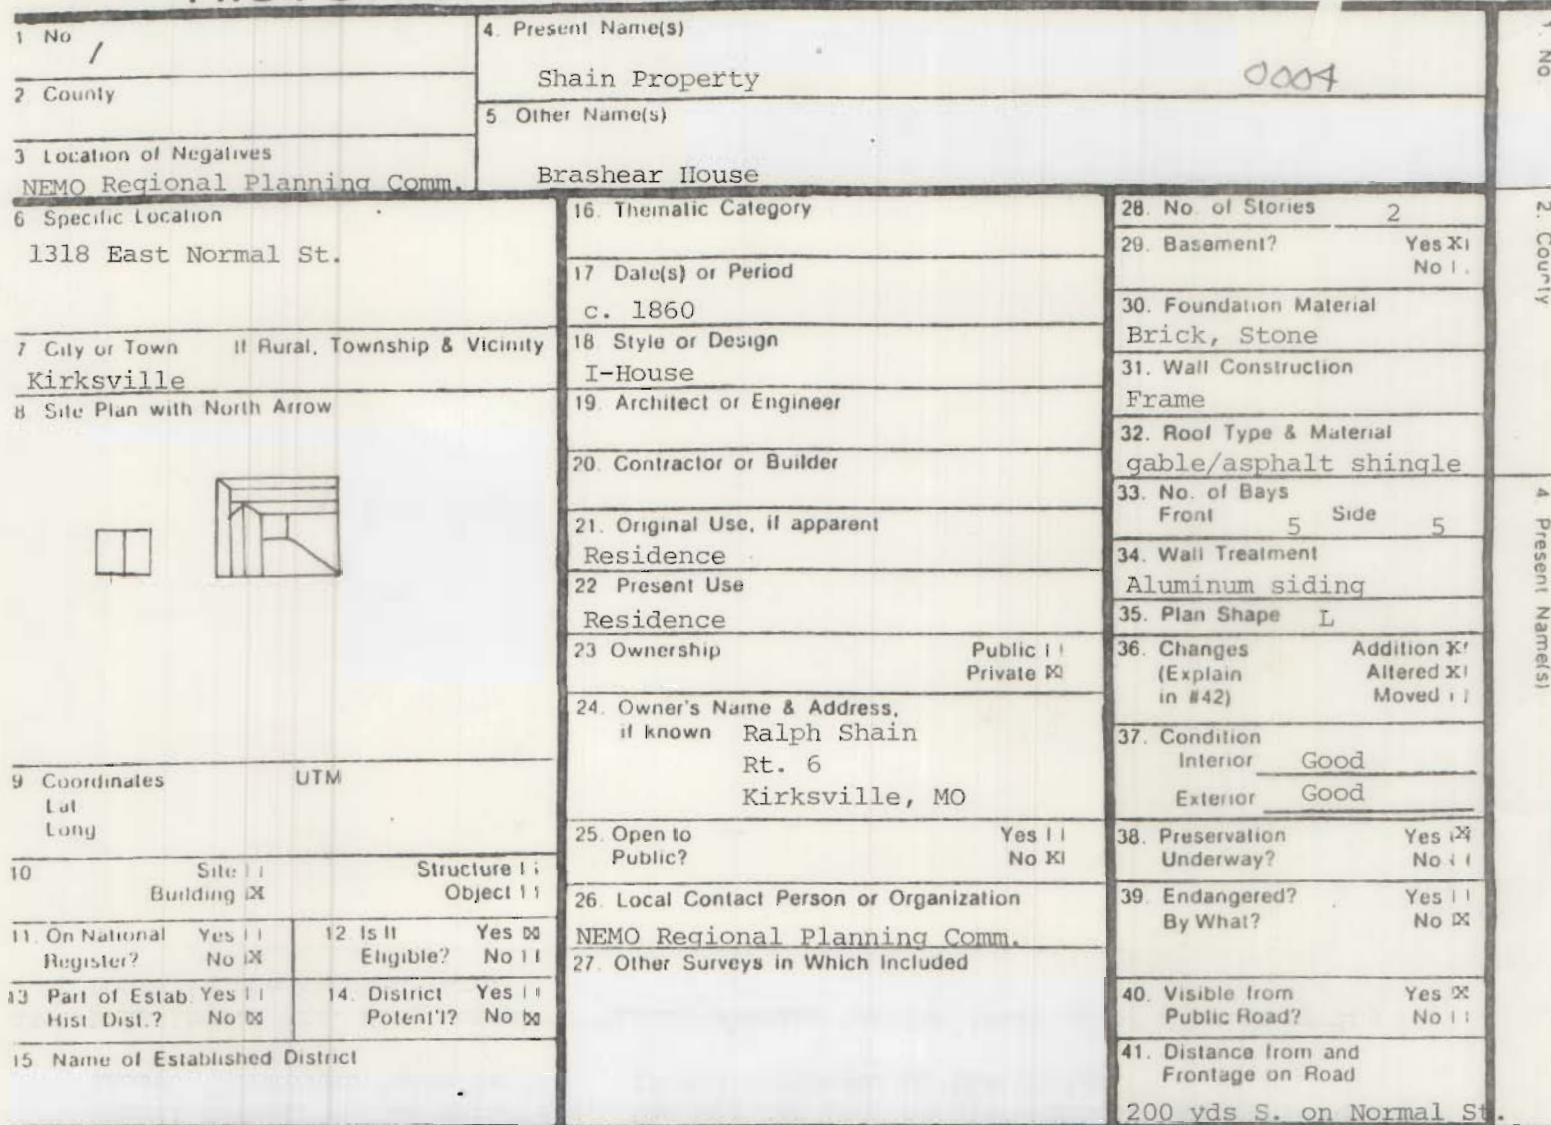 1 No
/
2 County
3 Location of Negatives
NEMO Regional Planning Comm.
4. Present Name(s)
Shain Property
0004
5 Other Name(s)
Brashear House
6 Specific Location
1318 East Normal St.
7 City or Town If Rural, Township & Vicinity
Kirksville
8 Site Plan with North Arrow
9 Coordinates UTM
Lat
Long
10 Site Structure
Building X Object
11. On National Yes
Register? No X
12. Is It Yes X
Eligible? No
13 Part of Estab. Yes
Hist. Dist.? No X
14. District Yes
Potent'l? No X
15 Name of Established District
16. Thematic Category
17 Date(s) or Period
c. 1860
18 Style or Design
I-House
19. Architect or Engineer
20. Contractor or Builder
21. Original Use, if apparent
Residence
22 Present Use
Residence
23 Ownership Public
Private X
24. Owner's Name & Address,
if known Ralph Shain
Rt. 6
Kirksville, MO
25. Open to Yes
Public? No X
26. Local Contact Person or Organization
NEMO Regional Planning Comm.
27. Other Surveys in Which Included
28. No. of Stories 2
29. Basement? Yes X
No
30. Foundation Material
Brick, Stone
31. Wall Construction
Frame
32. Roof Type & Material
gable/asphalt shingle
33. No. of Bays
Front 5 Side 5
34. Wall Treatment
Aluminum siding
35. Plan Shape L
36. Changes Addition X
(Explain Altered X
in #42) Moved
37. Condition
Interior Good
Exterior Good
38. Preservation Yes X
Underway? No
39. Endangered? Yes
By What? No X
40. Visible from Yes X
Public Road? No
41. Distance from and
Frontage on Road
200 yds S. on Normal St.
1. No.
2. County
4 Present Name(s)